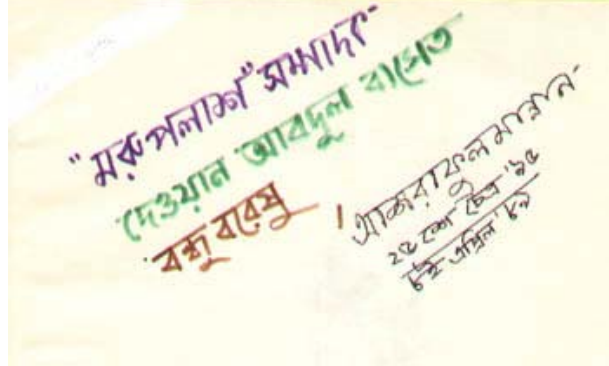 "মরুপলাশ" সম্পাদক
দেওয়ান আবদুল বাসেত
বন্ধু বরেষু।
আশরাফুল মান্নান
২৫ শে চৈত্র '৯৫
৮ই এপ্রিল '৮৯